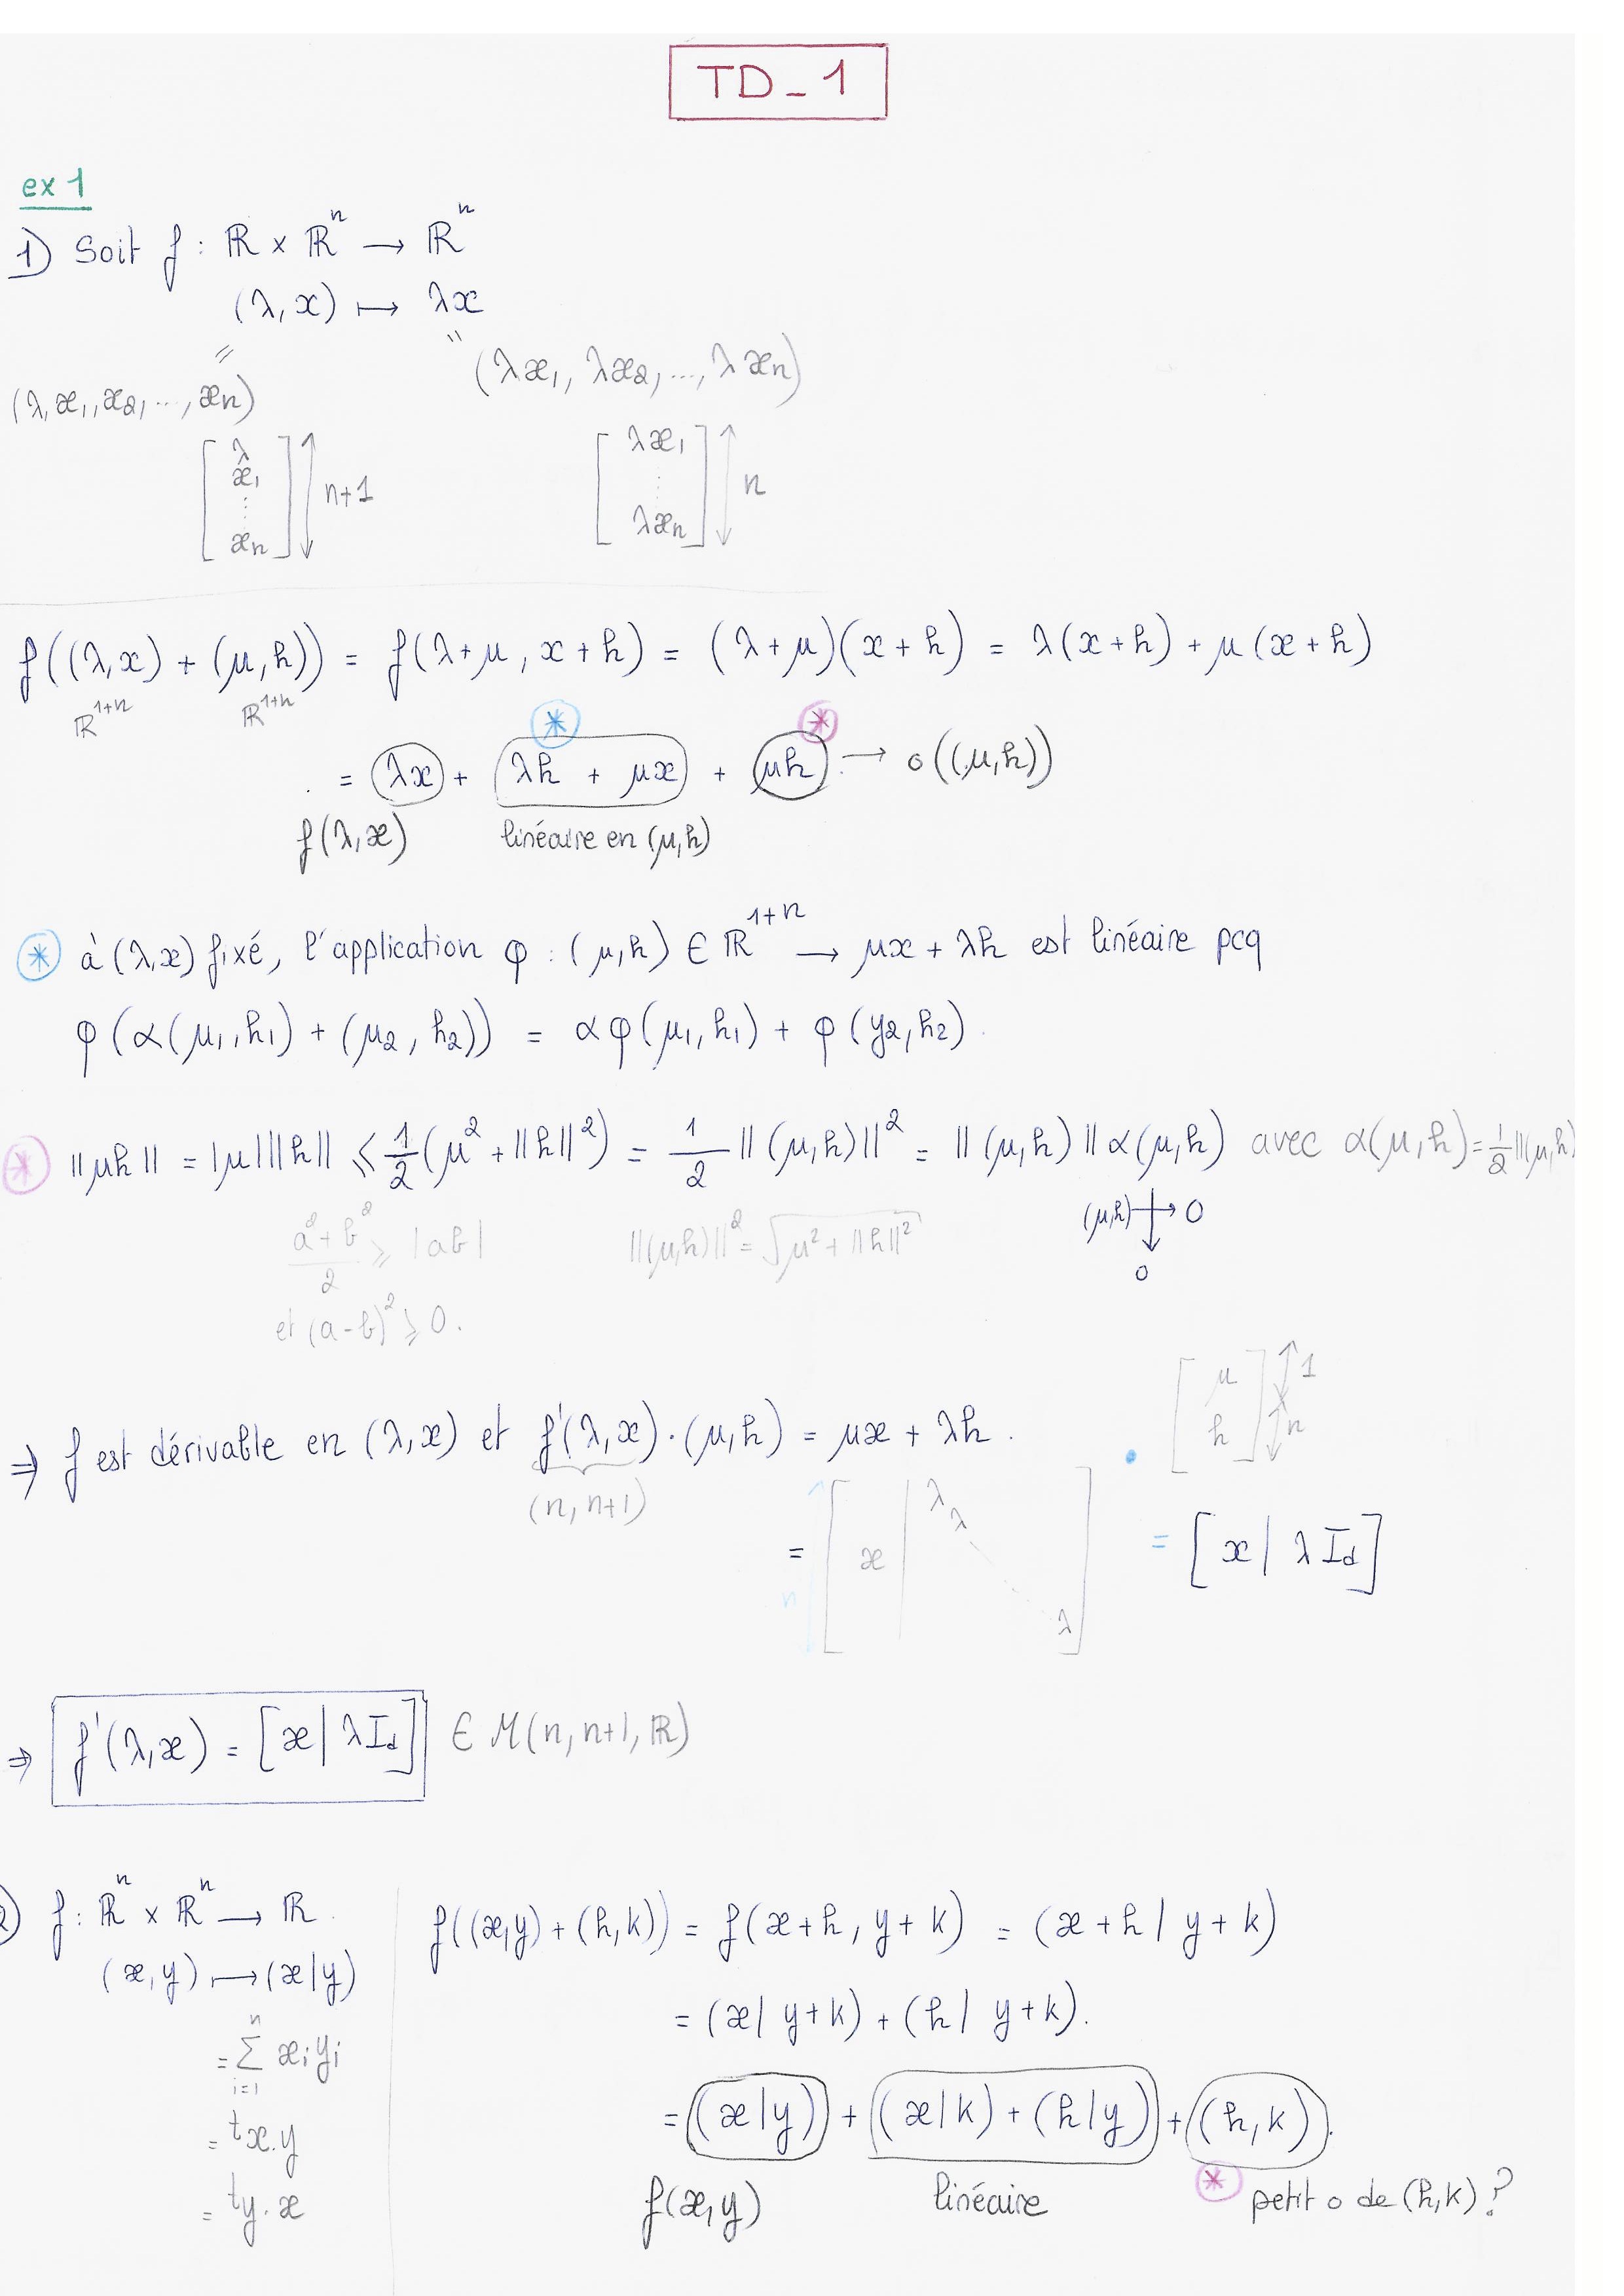 TD_1
ex 1
1) Soit f : ℝ × ℝⁿ → ℝⁿ
(λ, x) ↦ λx
= " (λx₁, λx₂, ..., λxₙ)
(λ, x₁, x₂, ..., xₙ)
[λ x₁ ⋮ xₙ] ↕ n+1 [λx₁ ⋮ λxₙ] ↕ n
f((λ,x) + (μ,h)) = f(λ+μ, x+h) = (λ+μ)(x+h) = λ(x+h) + μ(x+h)
ℝ¹⁺ⁿ ℝ¹⁺ⁿ
* *
= λx + λh + μx + μh → o((μ,h))
f(λ,x) linéaire en (μ,h)
* à (λ,x) fixé, l'application φ : (μ,h) ∈ ℝ¹⁺ⁿ → μx + λh est linéaire pcq
φ(α(μ₁,h₁) + (μ₂,h₂)) = αφ(μ₁,h₁) + φ(y₂,h₂).
* ||μh|| = |μ| ||h|| ⩽ 1/2 (μ² + ||h||²) = 1/2 ||(μ,h)||² = ||(μ,h)|| α(μ,h) avec α(μ,h) = 1/2 ||(μ,h)
(μ,h) → 0
↓ 0
(a² + b²)/2 ⩾ |ab| ||(μ,h)||² = √(μ² + ||h||²)
et (a-b)² ⩾ 0.
[μ h] ↕ 1 ↕ n
⇒ f est dérivable en (λ,x) et f'(λ,x)·(μ,h) = μx + λh.
(n, n+1)
= n ↕ [x | λ λ ⋱ λ] • = [x | λ Id]
⇒ f'(λ,x) = [x | λ Id] ∈ M(n, n+1, ℝ)
2) f : ℝⁿ × ℝⁿ → ℝ.
(x,y) ↦ (x|y)
= Σⁿᵢ₌₁ xᵢyᵢ
= ᵗx.y
= ᵗy.x
f((x,y) + (h,k)) = f(x+h, y+k) = (x+h | y+k)
= (x | y+k) + (h | y+k).
= (x|y) + (x|k) + (h|y) + (h,k).
f(x,y) linéaire * petit o de (h,k) ?